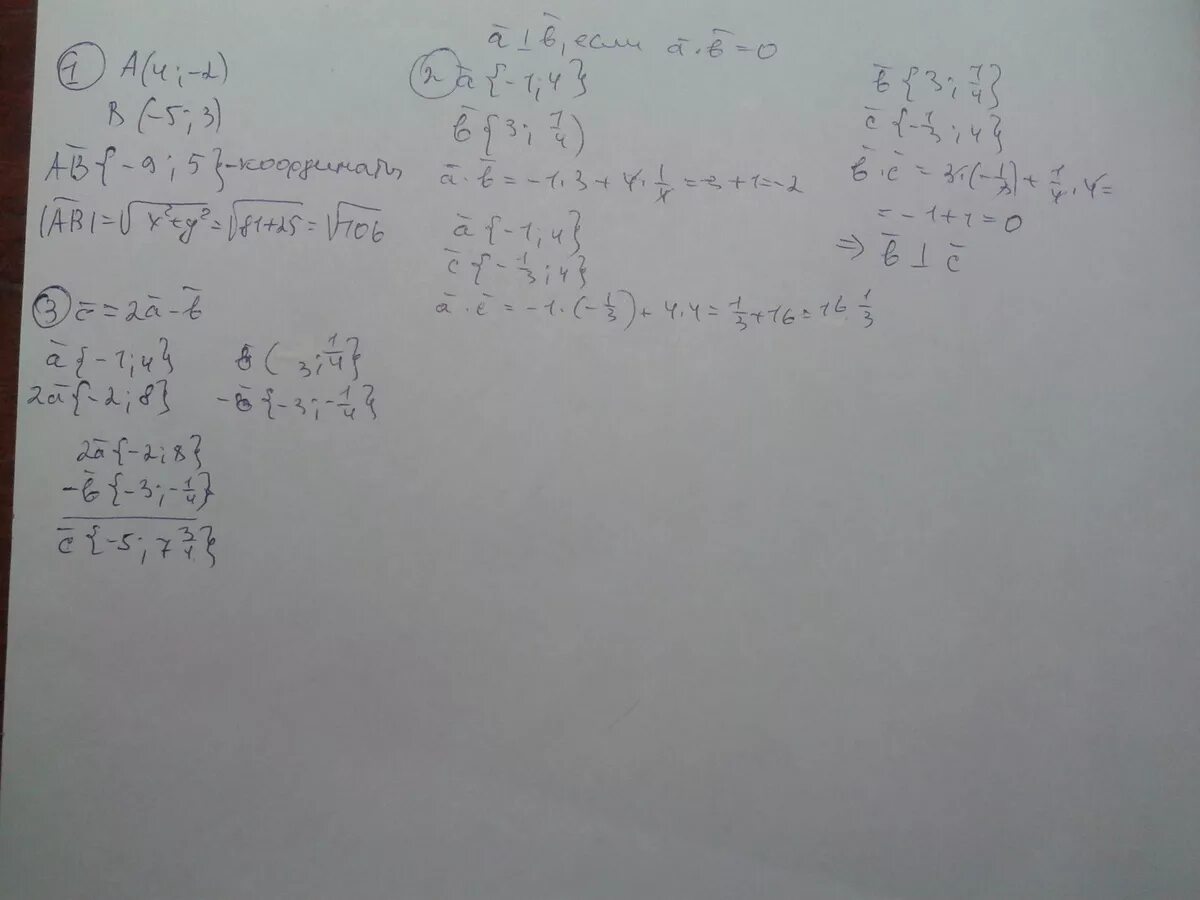 ① A(4;-2)
B(-5;3)
A̅B̅{-9;5}-координаты
|A̅B̅|=√x²+y²=√81+25=√106
a̅⊥b̅, если a̅·b̅=0
② a̅{-1;4}
b̅{3;1/4)
a̅·b̅=-1·3+4·1/4=-3+1=-2
a̅{-1;4}
c̅{-1/3;4}
a̅·c̅=-1·(-1/3)+4·4=1/3+16=16 1/3
b̅{3;1/4}
c̅{-1/3;4}
b̅·c̅=3·(-1/3)+1/4·4=
=-1+1=0
⇒ b̅⊥c̅
③ c̅=2a̅-b̅
a̅{-1;4} b̅(3;1/4}
2a̅{-2;8} -b̅{-3;-1/4}
2a̅{-2;8}
-b̅{-3;-1/4}
c̅{-5;7 3/4}